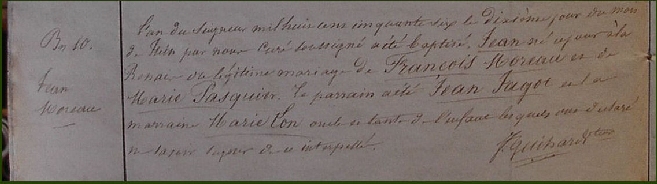 Bn 10.
Jean
Moreau
L'an du Seigneur mil huit cent cinquante six le dixième jour du mois
de par nous curé soussigné a été baptisé Jean né ce jour à la
du légitime mariage de François Moreau et de
Marie Pasquier. Le parrain a été Jean Jagot et la
marraine Marie oncle et tante de l'enfant lesquels ont déclaré
ne savoir signer de ce interpellé.
J. Guihard